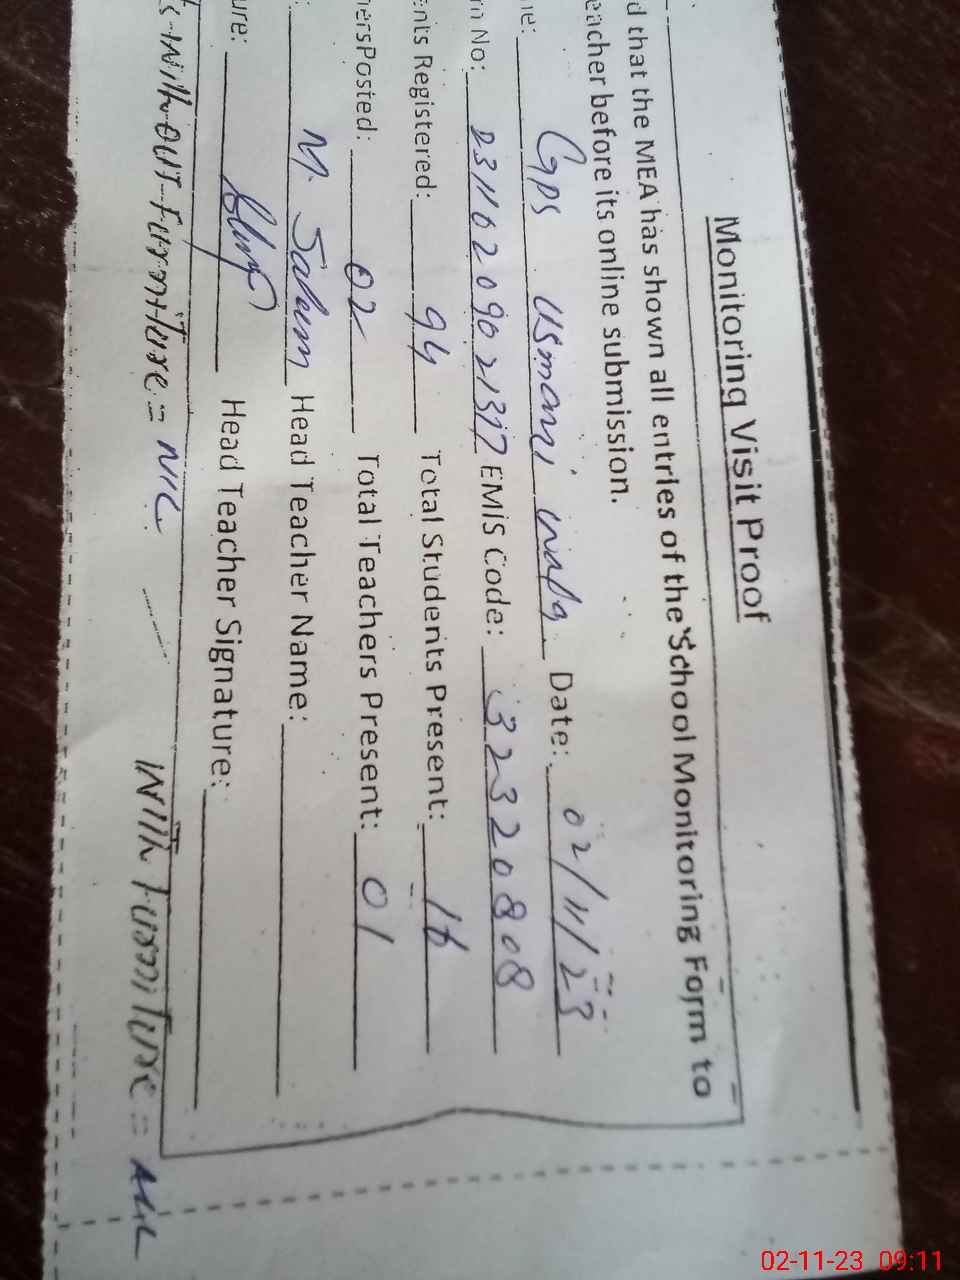 Monitoring Visit Proof
d that the MEA has shown all entries of the School Monitoring Form to
eacher before its online submission.
ne: Gps usmani wala Date: 02/11/23
rn No: D3110209021317 EMIS Code: 32320808
ents Registered: 94 Total Students Present: 16
hersPosted: 02 Total Teachers Present: 01
: M. Salam Head Teacher Name:
ure: Head Teacher Signature:
ts-without-furniture = NIL With Furniture = NIL
02-11-23 09:11